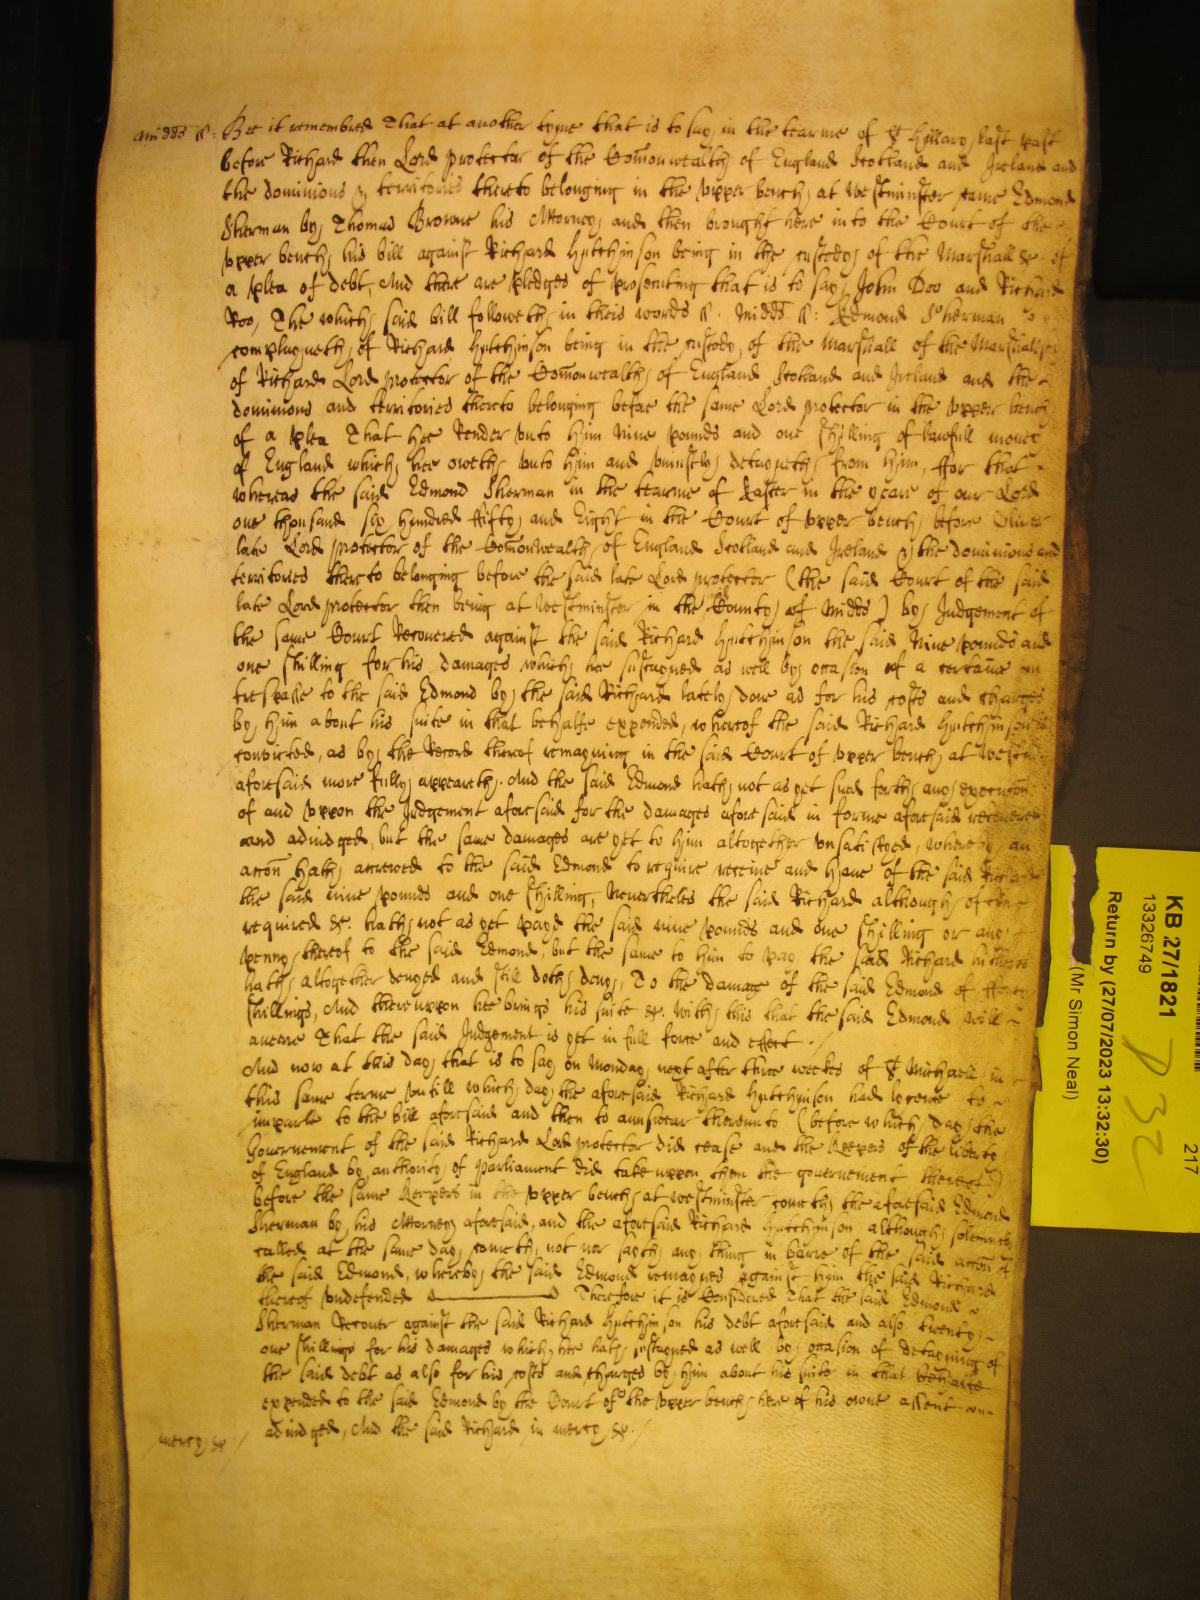 Midds ss: Bee it remembred That at another tyme that is to say in the tearme of St Hillary last past
before Richard then Lord protector of the Comonwealth of England Scotland and Ireland and
the dominions & territories thereto belonging in the vpper bench at Westminster came Edmond
Sherman by Thomas Browne his Attorney and then brought here into the Court of the
vpper bench his bill against Richard Hutchinson being in the custody of the Marshall &c of
a plea of debt, And there are pledges of prosecuting that is to say John Doo and Richard
Roo, The which said bill followeth in theis words ss. Midds ss: Edmond Sherman
complayneth of Richard Hutchinson being in the custody of the Marshall of the Marshalsey
of Richard Lord protector of the Comonwealth of England Scotland and Ireland and the
dominions and territories thereto belonging before the same Lord protector in the vpper bench
of a plea That hee Render vnto him Nine pounds and one shilling of lawfull money
of England which hee oweth vnto him and vniustly detayneth from him, ffor that
whereas the said Edmond Sherman in the tearme of Easter in the yeare of our Lord
one thousand six hundred ffifty and Eight in the Court of vpper bench before Oliver
late Lord protector of the Comonwealth of England Scotland and Ireland & the dominions and
territories thereto belonging before the said late Lord protector (the said Court of the said
late Lord protector then being at Westminster in the County of Midds) by Judgement of
the same Court Recovered against the said Richard Hutchinson the said Nine pounds and
one shilling for his damages which hee sustayned as well by occasion of a certaine
trespasse to the said Edmond by the said Richard lately done as for his costs and charges
by him about his suite in that behalfe expended, whereof the said Richard Hutchinson is
convicted, as by the Record thereof remayning in the said Court of vpper bench at Westm
aforesaid more fully appeareth. And the said Edmond hath not as yet sued forth any execucon
of and vppon the Judgement aforesaid for the damages aforesaid in forme aforesaid recovered
and adiudged, but the same damages are yet to him altogether vnsatisfyed, whereby an
accon hath accrewed to the said Edmond to require receive and have of the said Richard
the said nine pounds and one shilling, Neverthelés the said Richard although often
required &c. hath not as yet payd the said nine pounds and one shilling or any
penny thereof to the said Edmond, but the same to him to pay the said Richard hitherto
hath altogether denyed and still doth deny, To the damage of the said Edmond of fforty
shillings, And thereuppon hee brings his suite &c. With this that the said Edmond will
averre That the said Judgement is yet in full force and effect.
And now at this day that is to say on Monday next after three weekes of St Michaell in
this same terme vntill which day the aforesaid Richard Hutchinson had lycence to
imparle to the bill aforesaid and then to aunswear thereunto (before which day the
Governement of the said Richard Lord protector did cease and the Keepers of the liberty
of England by authority of parliament did take vppon them the governement thereof)
before the same Keepers in the vpper bench at Westminster cometh the aforesaid Edmond
Sherman by his Attorney aforesaid, and the aforesaid Richard Hutchinson although solemnely
called at the same day cometh not nor sayth any thing in barre of the said accon of
the said Edmond, whereby the said Edmond remaynes against him the said Richard
thereof vndefended Therefore it is Considered That the said Edmond
Sherman Recover against the said Richard Hutchinson his debt aforesaid and also twenty
one shillings for his damages which hee hath sustayned as well by occasion of detayning of
the said debt as also for his costs and charges by him about his suite in that behalfe
expended to the said Edmond by the Court of the vpper bench here of his owne assent
adiudged, And the said Richard in mercy &c.
mercy &c
KB 27/1821
13326749
Return by (27/07/2023 13:32:30)
(Mr Simon Neal)
217
D32